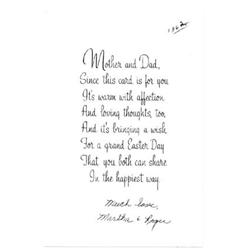 1962
Mother and Dad,
Since this card is for you
It's warm with affection
And loving thoughts, too,
And it's bringing a wish
For a grand Easter Day
That you both can share
In the happiest way.
Much love,
Martha & Roger